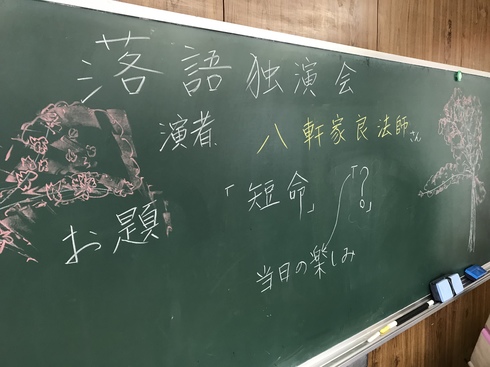 落語独演会
演者 八軒家良法師さん
お題 「短命」「?」
当日の楽しみ